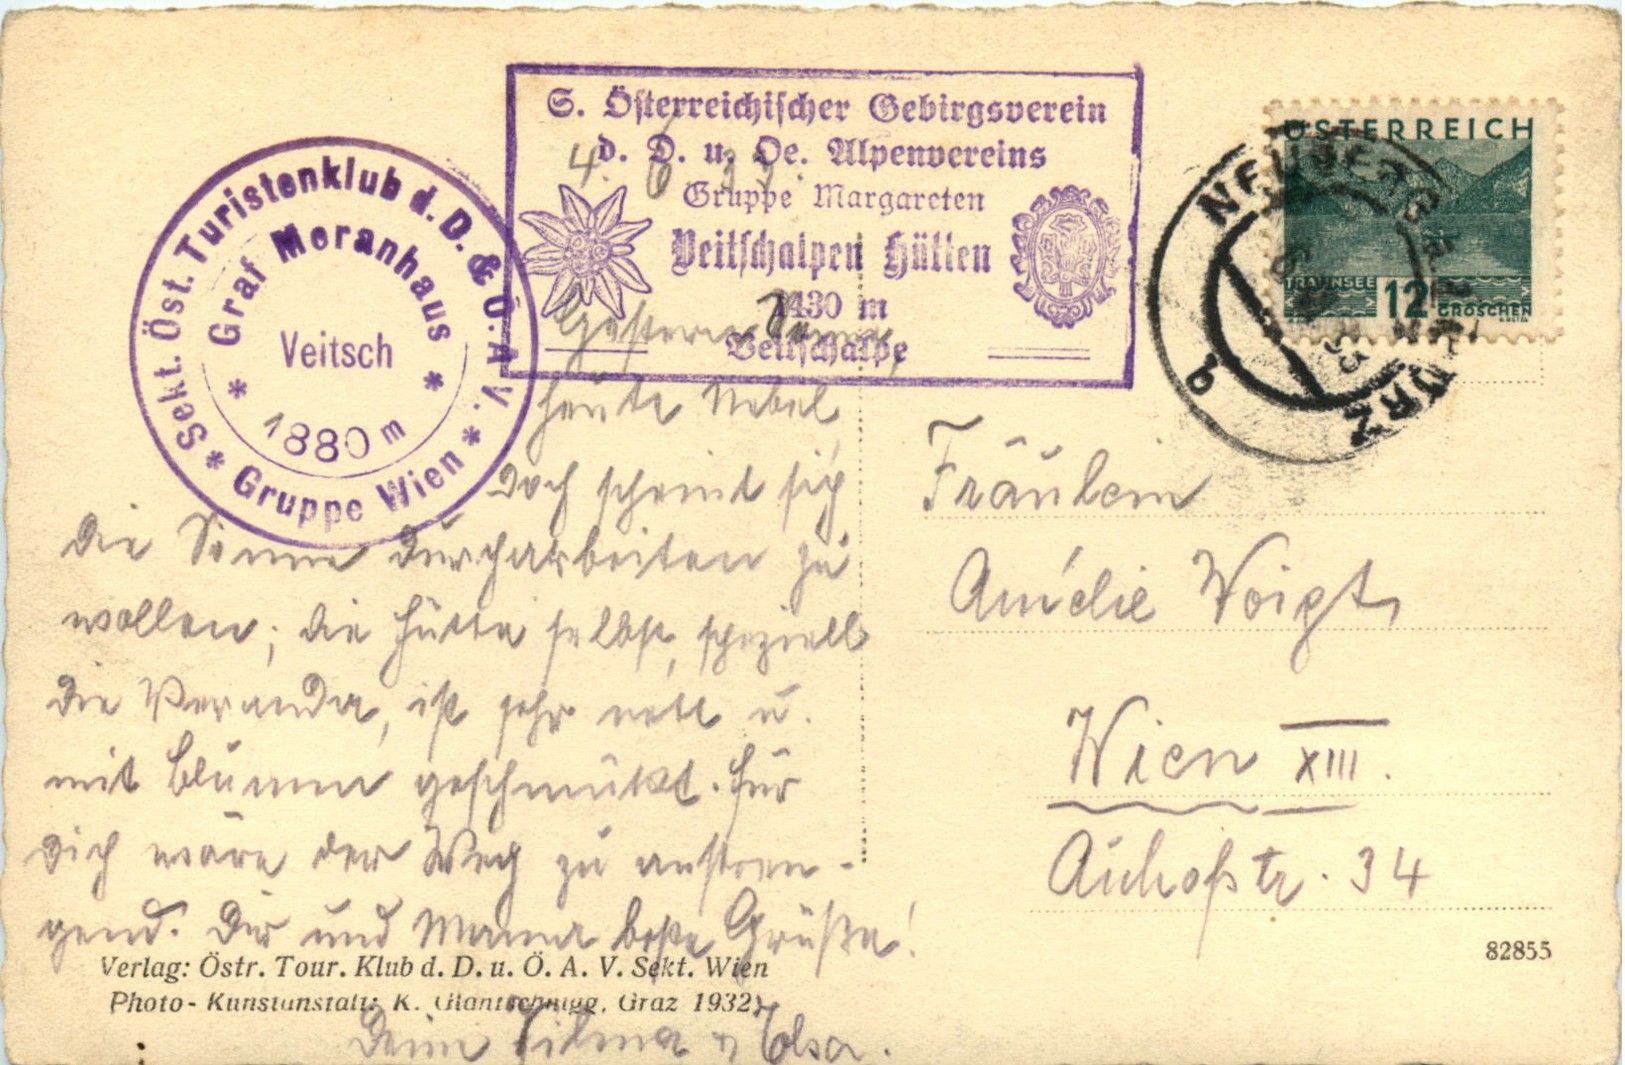 S. Österreichischer Gebirgsverein
d. D. u. Oe. Alpenvereins
Gruppe Margareten
Veitschalpen Hütten
1430 m
Veitschalpe
Sekt. Öst. Turistenklub d. D. & Ö. A. V. * Gruppe Wien *
* Graf Meranhaus *
Veitsch
1880 m
ÖSTERREICH
TRAUNSEE
12 GROSCHEN
NEUBERG A.D. MÜRZ
b
4. 6. 33.
Gestern Sonne,
heute Nebel,
doch scheint sich
die Sonne durcharbeiten zu
wollen; die Hütte selbst, speziell
die Veranda, ist sehr nett u.
mit Blumen geschmückt. Für
Dich wäre der Weg zu anstren-
gend. Dir und Mama beste Grüße!
Deine Wilma u Elsa.
Fräulein
Amélie Voigt,
Wien XIII.
Auhofstr. 34
82855
Verlag: Östr. Tour. Klub d. D. u. Ö. A. V. Sekt. Wien
Photo-Kunstanstalt: K. Glantschnigg, Graz 1932